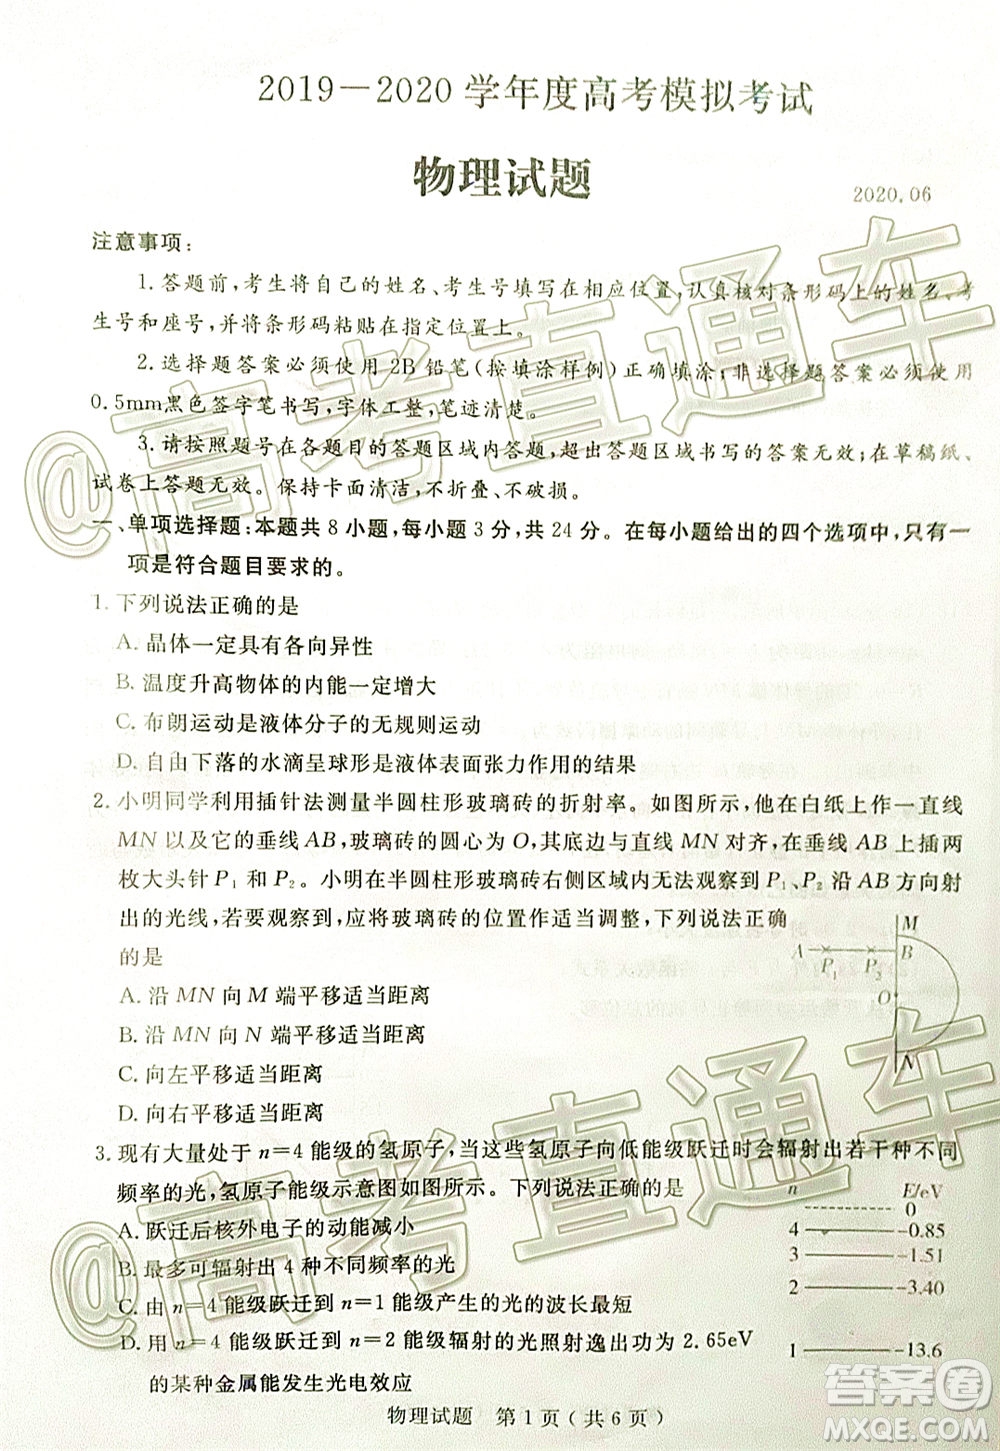 2019－2020学年度高考模拟考试
物理试题
2020.06
注意事项:
1.答题前,考生将自己的姓名、考生号填写在相应位置,认真核对条形码上的姓名、考
生号和座号,并将条形码粘贴在指定位置上。
2.选择题答案必须使用2B铅笔(按填涂样例)正确填涂;非选择题答案必须使用
0.5mm黑色签字笔书写,字体工整,笔迹清楚。
3.请按照题号在各题目的答题区域内作答,超出答题区域书写的答案无效;在草稿纸、
试卷上答题无效。保持卡面清洁,不折叠、不破损。
一、单项选择题:本题共8小题,每小题3分,共24分。在每小题给出的四个选项中,只有一
项是符合题目要求的。
1.下列说法正确的是
A.晶体一定具有各向异性
B.温度升高物体的内能一定增大
C.布朗运动是液体分子的无规则运动
D.自由下落的水滴呈球形是液体表面张力作用的结果
2.小明同学利用插针法测量半圆柱形玻璃砖的折射率。如图所示,他在白纸上作一直线
MN以及它的垂线AB,玻璃砖的圆心为O,其底边与直线MN对齐,在垂线AB上插两
枚大头针P₁和P₂。小明在半圆柱形玻璃砖右侧区域内无法观察到P₁、P₂沿AB方向射
出的光线,若要观察到,应将玻璃砖的位置作适当调整,下列说法正确
的是
A.沿MN向M端平移适当距离
B.沿MN向N端平移适当距离
C.向左平移适当距离
D.向右平移适当距离
M
A P₁ P₂ B
O
N
3.现有大量处于n=4能级的氢原子,当这些氢原子向低能级跃迁时会辐射出若干种不同
频率的光,氢原子能级示意图如图所示。下列说法正确的是
A.跃迁后核外电子的动能减小
B.最多可辐射出4种不同频率的光
C.由n=4能级跃迁到n=1能级产生的光的波长最短
D.用n=4能级跃迁到n=2能级辐射的光照射逸出功为2.65eV
的某种金属能发生光电效应
n E/eV
0
4 -0.85
3 -1.51
2 -3.40
1 -13.6
物理试题 第1页(共6页)
@高考直通车
@高考直通车
答案圈
MXQE.COM